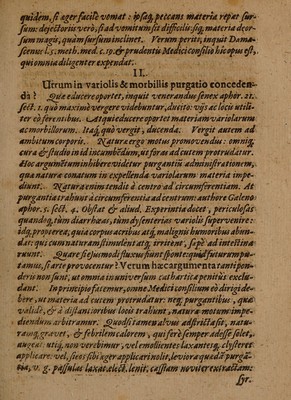 quidem, si ager facile vomat: ipsaq; peccans materia repat sur-
sum: dejectoriis verò, si ad vomitum sit difficilis, materia deor-
sum magis, quàm sursum inclinet. Verum perite, inquit Dama-
scenus l. 5. meth. med. c. 19. & prudentis Medici consilio hic opus est,
qui omnia diligenter expendat.
II.
Utrum in variolis & morbillis purgatio conceden-
da? Quæ educere oportet, inquit venerandus senex aphor. 21.
sect. 1. quò maximè vergere videbuntur, ducito: viis ac locis utili-
ter cò ferentibus. Atqui educere oportet materiam variolarum
ac morbillorum. Itaq; quò vergit, ducenda. Vergit autem ad
ambitum corporis. Natura ergo motus promovendus: omniq;
cura & studio nil id inhibendum, ut sursum ad cutem protrudatur.
Hoc argumentum inhibere videtur purgantiū administrationem,
qua naturæ conatum in expellenda variolarum materia impe-
diunt. Natura enim tendit à centro ad circumferentiam. At
purgantia trahunt à circumferentia ad centrum: authore Galeno
aphor. 5. sect. 4. Obstat & aliud. Experientia docet, periculosas
quandoq; tùm diarrhœas, tùm dysenterias variolis supervenire:
idq; propterea, quia corpus acribus atq; malignis humoribus abun-
dat: qui cum naturam stimulent atq; irritent, sæpè ad intestina
ruunt. Quare si ejusmodi fluxus sunt sponte: quid futurum pu-
tamus, si arte provocentur? Verum hæc argumenta tanti pon-
deris non sunt, ut omnia in universum cathartica penitùs exclu-
dant. In principio fatemur, omne Medici consilium eò dirigi de-
bere, ut materia ad cutem protrudatur: neq; purgantibus, qua
validè, & à distantioribus locis trahunt, natura motum impe-
diendum arbitramur. Quod si tamen alvus adstricta sit, natu-
ramq; gravet, & febrilem calorem, qui ferè semper adesse solet,
augeat: utiq; non verebimur, vel emollientes laxantesq; clysteres
applicare: vel, si eos sibi ager applicari nolit, leviora quædam purgā-
tia, v. g. passulas laxat. elect. lenit. cassiam noviter extractam:
syr.